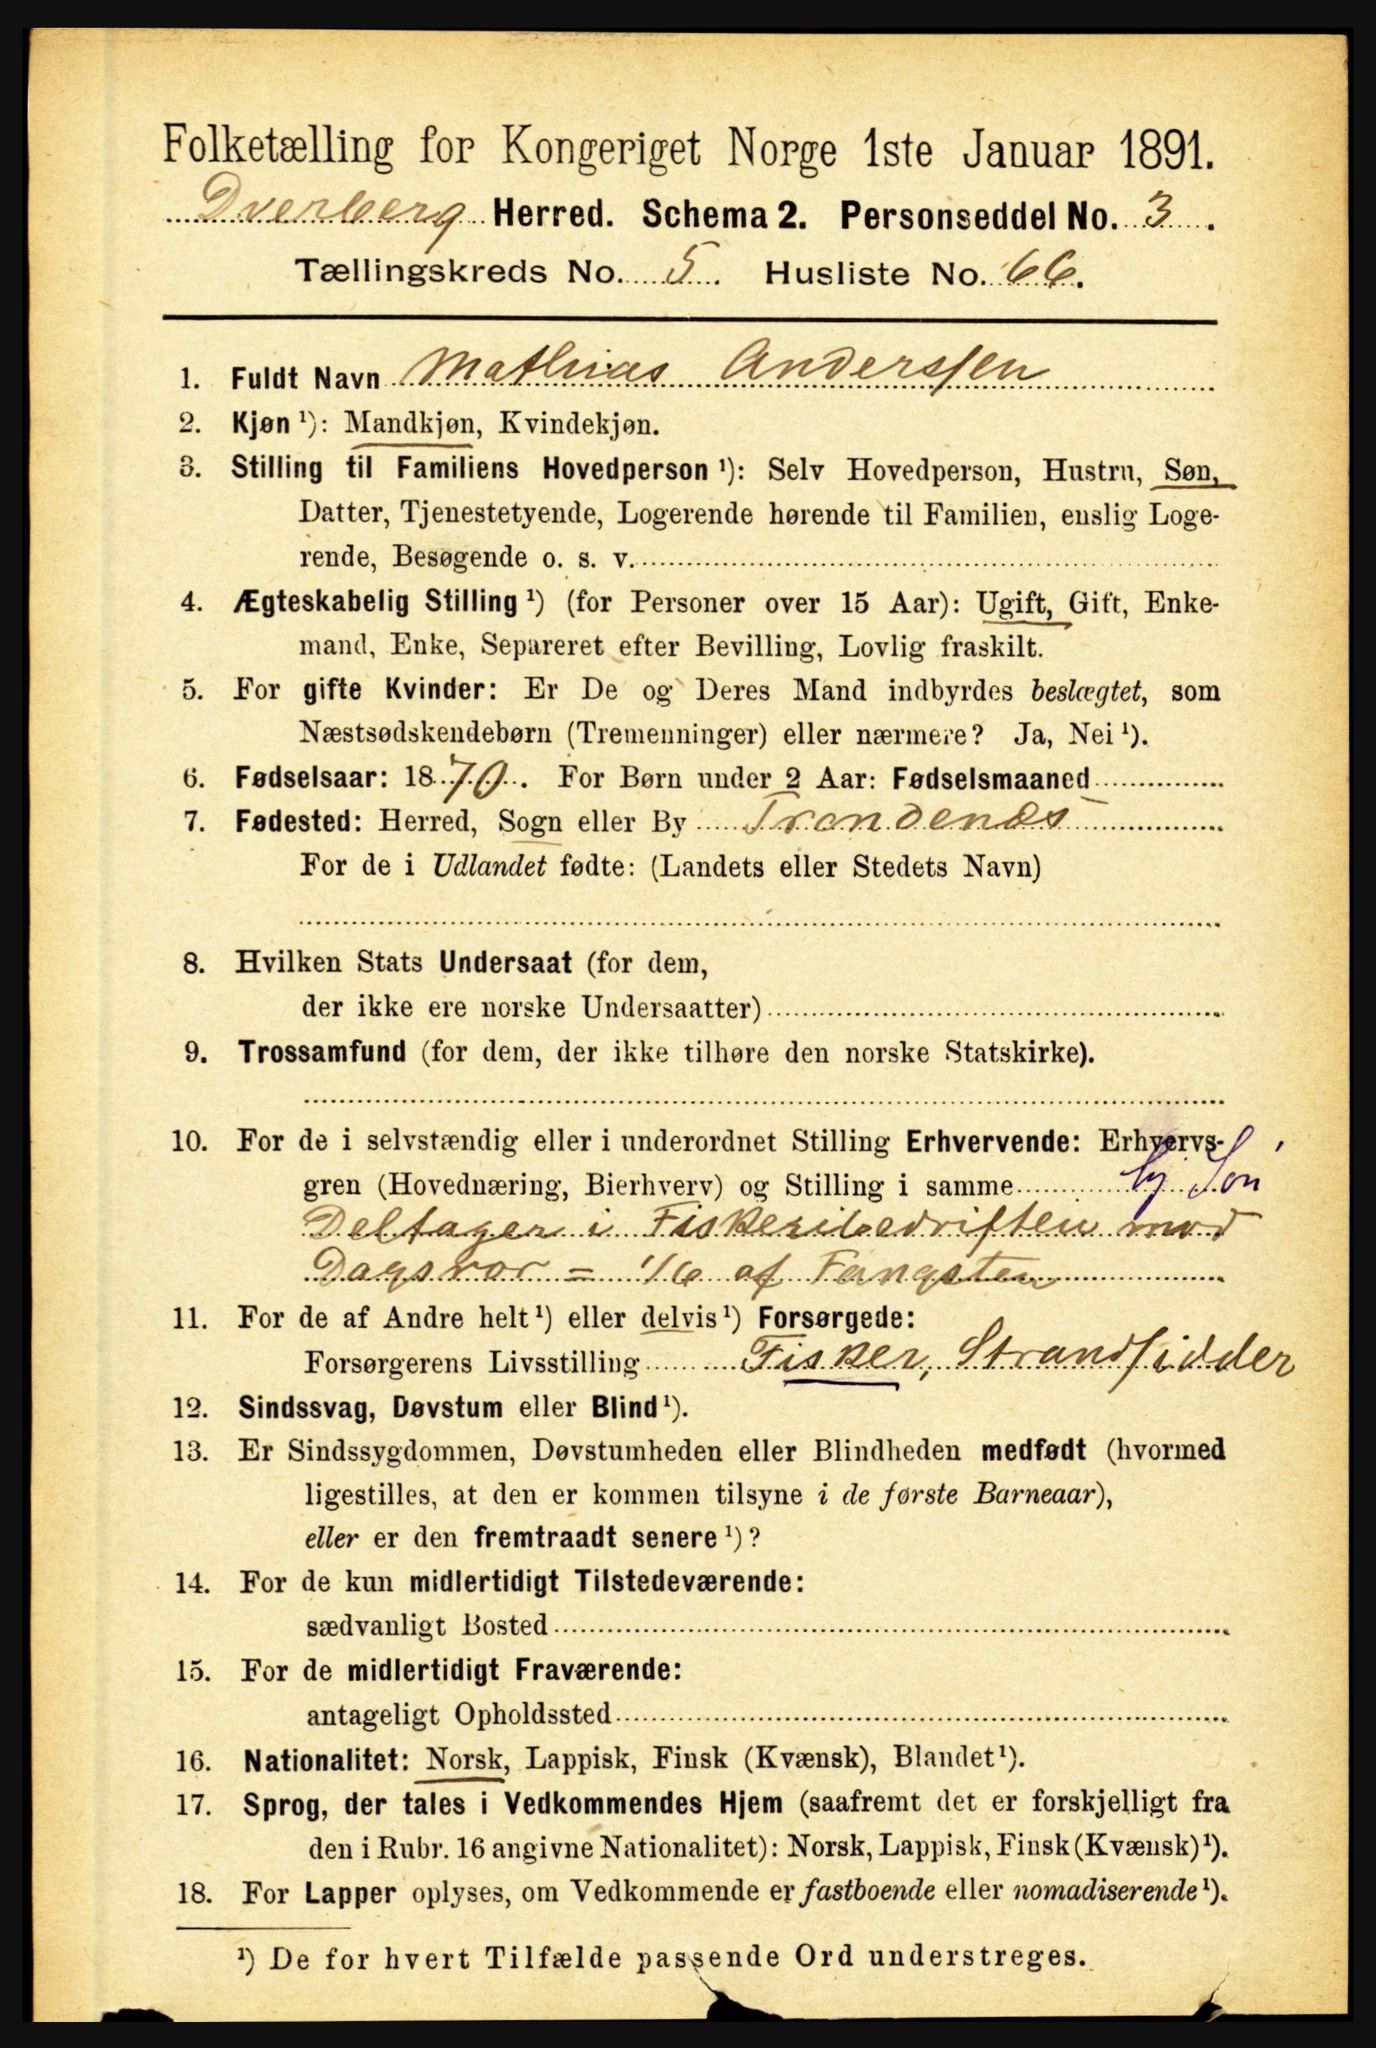 Folketælling for Kongeriget Norge 1ste Januar 1891.
Dverberg Herred. Schema 2. Personseddel No. 3.
Tællingskreds No. 5. Husliste No. 66.
1. Fuldt Navn Mathias Anderssen
2. Kjøn ¹): Mandkjøn, Kvindekjøn.
3. Stilling til Familiens Hovedperson ¹): Selv Hovedperson, Hustru, Søn,
Datter, Tjenestetyende, Logerende hørende til Familien, enslig Loge-
rende, Besøgende o. s. v.
4. Ægteskabelig Stilling ¹) (for Personer over 15 Aar): Ugift, Gift, Enke-
mand, Enke, Separeret efter Bevilling, Lovlig fraskilt.
5. For gifte Kvinder: Er De og Deres Mand indbyrdes beslægtet, som
Næstsødskendebørn (Tremenninger) eller nærmere? Ja, Nei ¹).
6. Fødselsaar: 1870. For Børn under 2 Aar: Fødselsmaaned
7. Fødested: Herred, Sogn eller By Trondenes
For de i Udlandet fødte: (Landets eller Stedets Navn)
8. Hvilken Stats Undersaat (for dem,
der ikke ere norske Undersaatter)
9. Trossamfund (for dem, der ikke tilhøre den norske Statskirke).
10. For de i selvstændig eller i underordnet Stilling Erhvervende: Erhvervs-
gren (Hovednæring, Bierhverv) og Stilling i samme Søn
Deltager i Fiskeribedriften mod
Dagsror = 1/6 af Fangsten
11. For de af Andre helt ¹) eller delvis ¹) Forsørgede:
Forsørgerens Livsstilling Fisker, Strandsidder
12. Sindssvag, Døvstum eller Blind ¹).
13. Er Sindssygdommen, Døvstumheden eller Blindheden medfødt (hvormed
ligestilles, at den er kommen tilsyne i de første Barneaar),
eller er den fremtraadt senere ¹)?
14. For de kun midlertidigt Tilstedeværende:
sædvanligt Bosted
15. For de midlertidigt Fraværende:
antageligt Opholdssted
16. Nationalitet: Norsk, Lappisk, Finsk (Kvænsk), Blandet ¹).
17. Sprog, der tales i Vedkommendes Hjem (saafremt det er forskjelligt fra
den i Rubr. 16 angivne Nationalitet): Norsk, Lappisk, Finsk (Kvænsk) ¹).
18. For Lapper oplyses, om Vedkommende er fastboende eller nomadiserende ¹).
¹) De for hvert Tilfælde passende Ord understreges.